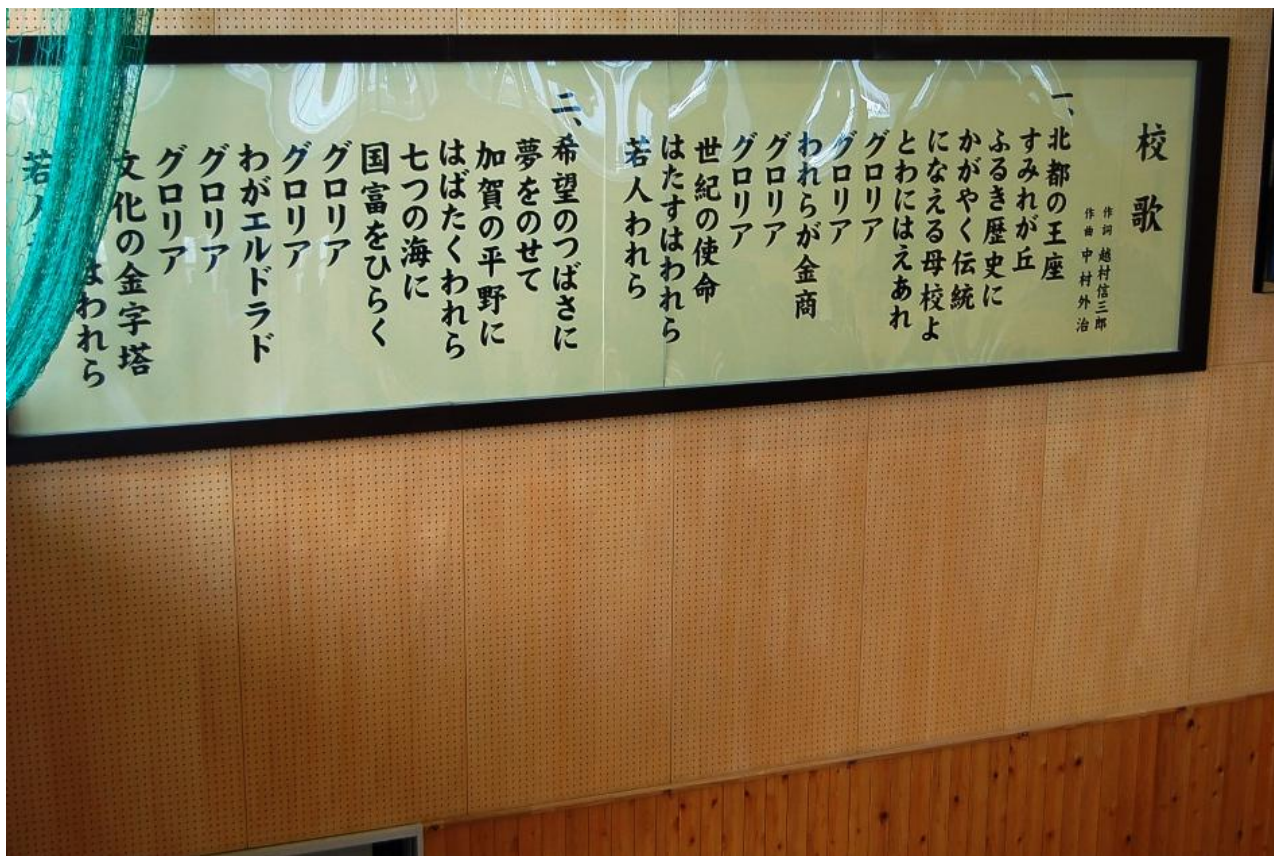 校歌
作詞 越村信三郎
作曲 中村外治
一、北都の王座
すみれが丘
ふるき歴史に
かがやく伝統
になえる母校よ
とわにはえあれ
グロリア
グロリア
われらが金商
グロリア
グロリア
世紀の使命
はたすはわれら
若人われら
二、希望のつばさに
夢をのせて
加賀の平野に
はばたくわれら
七つの海に
国富をひらく
グロリア
グロリア
わがエルドラド
グロリア
グロリア
文化の金字塔
はわれら
若人